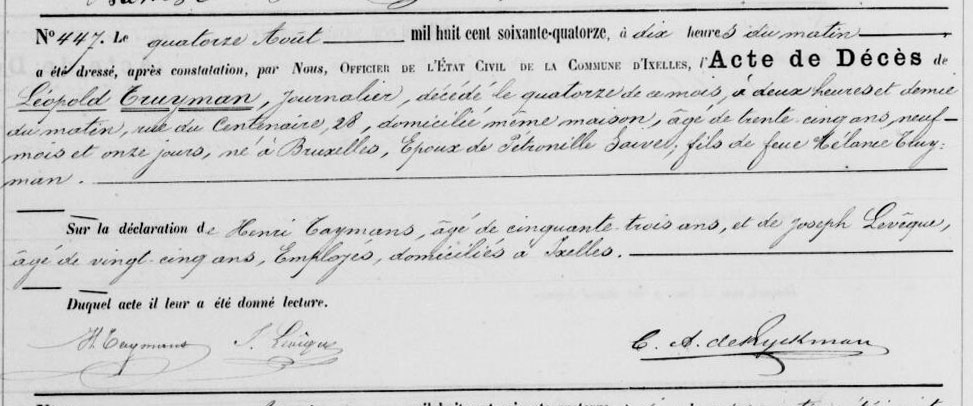 N° 447. Le quatorze Août mil huit cent soixante-quatorze, à dix heures du matin
a été dressé, après constatation, par Nous, OFFICIER DE L'ÉTAT CIVIL DE LA COMMUNE D'IXELLES, l'Acte de Décès de
Léopold Truyman, journalier, décédé le quatorze de ce mois, à deux heures et demie
du matin, rue du Centenaire 28, domicilié même maison, âgé de trente cinq ans, neuf
mois et onze jours, né à Bruxelles, Epoux de Pétronille fils de feue Mélanie Truy-
man.
Sur la déclaration de Henri Taymans, âgé de cinquante trois ans, et de Joseph Levêque,
âgé de vingt-cinq ans, Employés, domiciliés à Ixelles.
Duquel acte il leur a été donné lecture.
H Taymans J. Levêque C. A. de Ryckman
mil huit cent soixante-quatorze